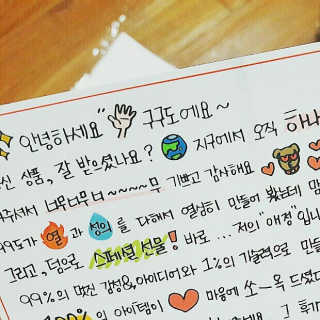 안녕하세요~ 구구도예요~
신 상품, 잘 받으셨나요? 지구에서 오직 하나
해주셔서 너무너무너~~~~무 기쁘고 감사해요
99도가 열과 성의를 다해서 열심히 만들어 봤는데 맘
그리고, 덤으로 스페셜 선물! 바로... 저의 "애정"입니
99%의 멋진 감성&아이디어와 1%의 기능력으로 만들
100%의 아이템이 마음에 쏘-옥 드셨다